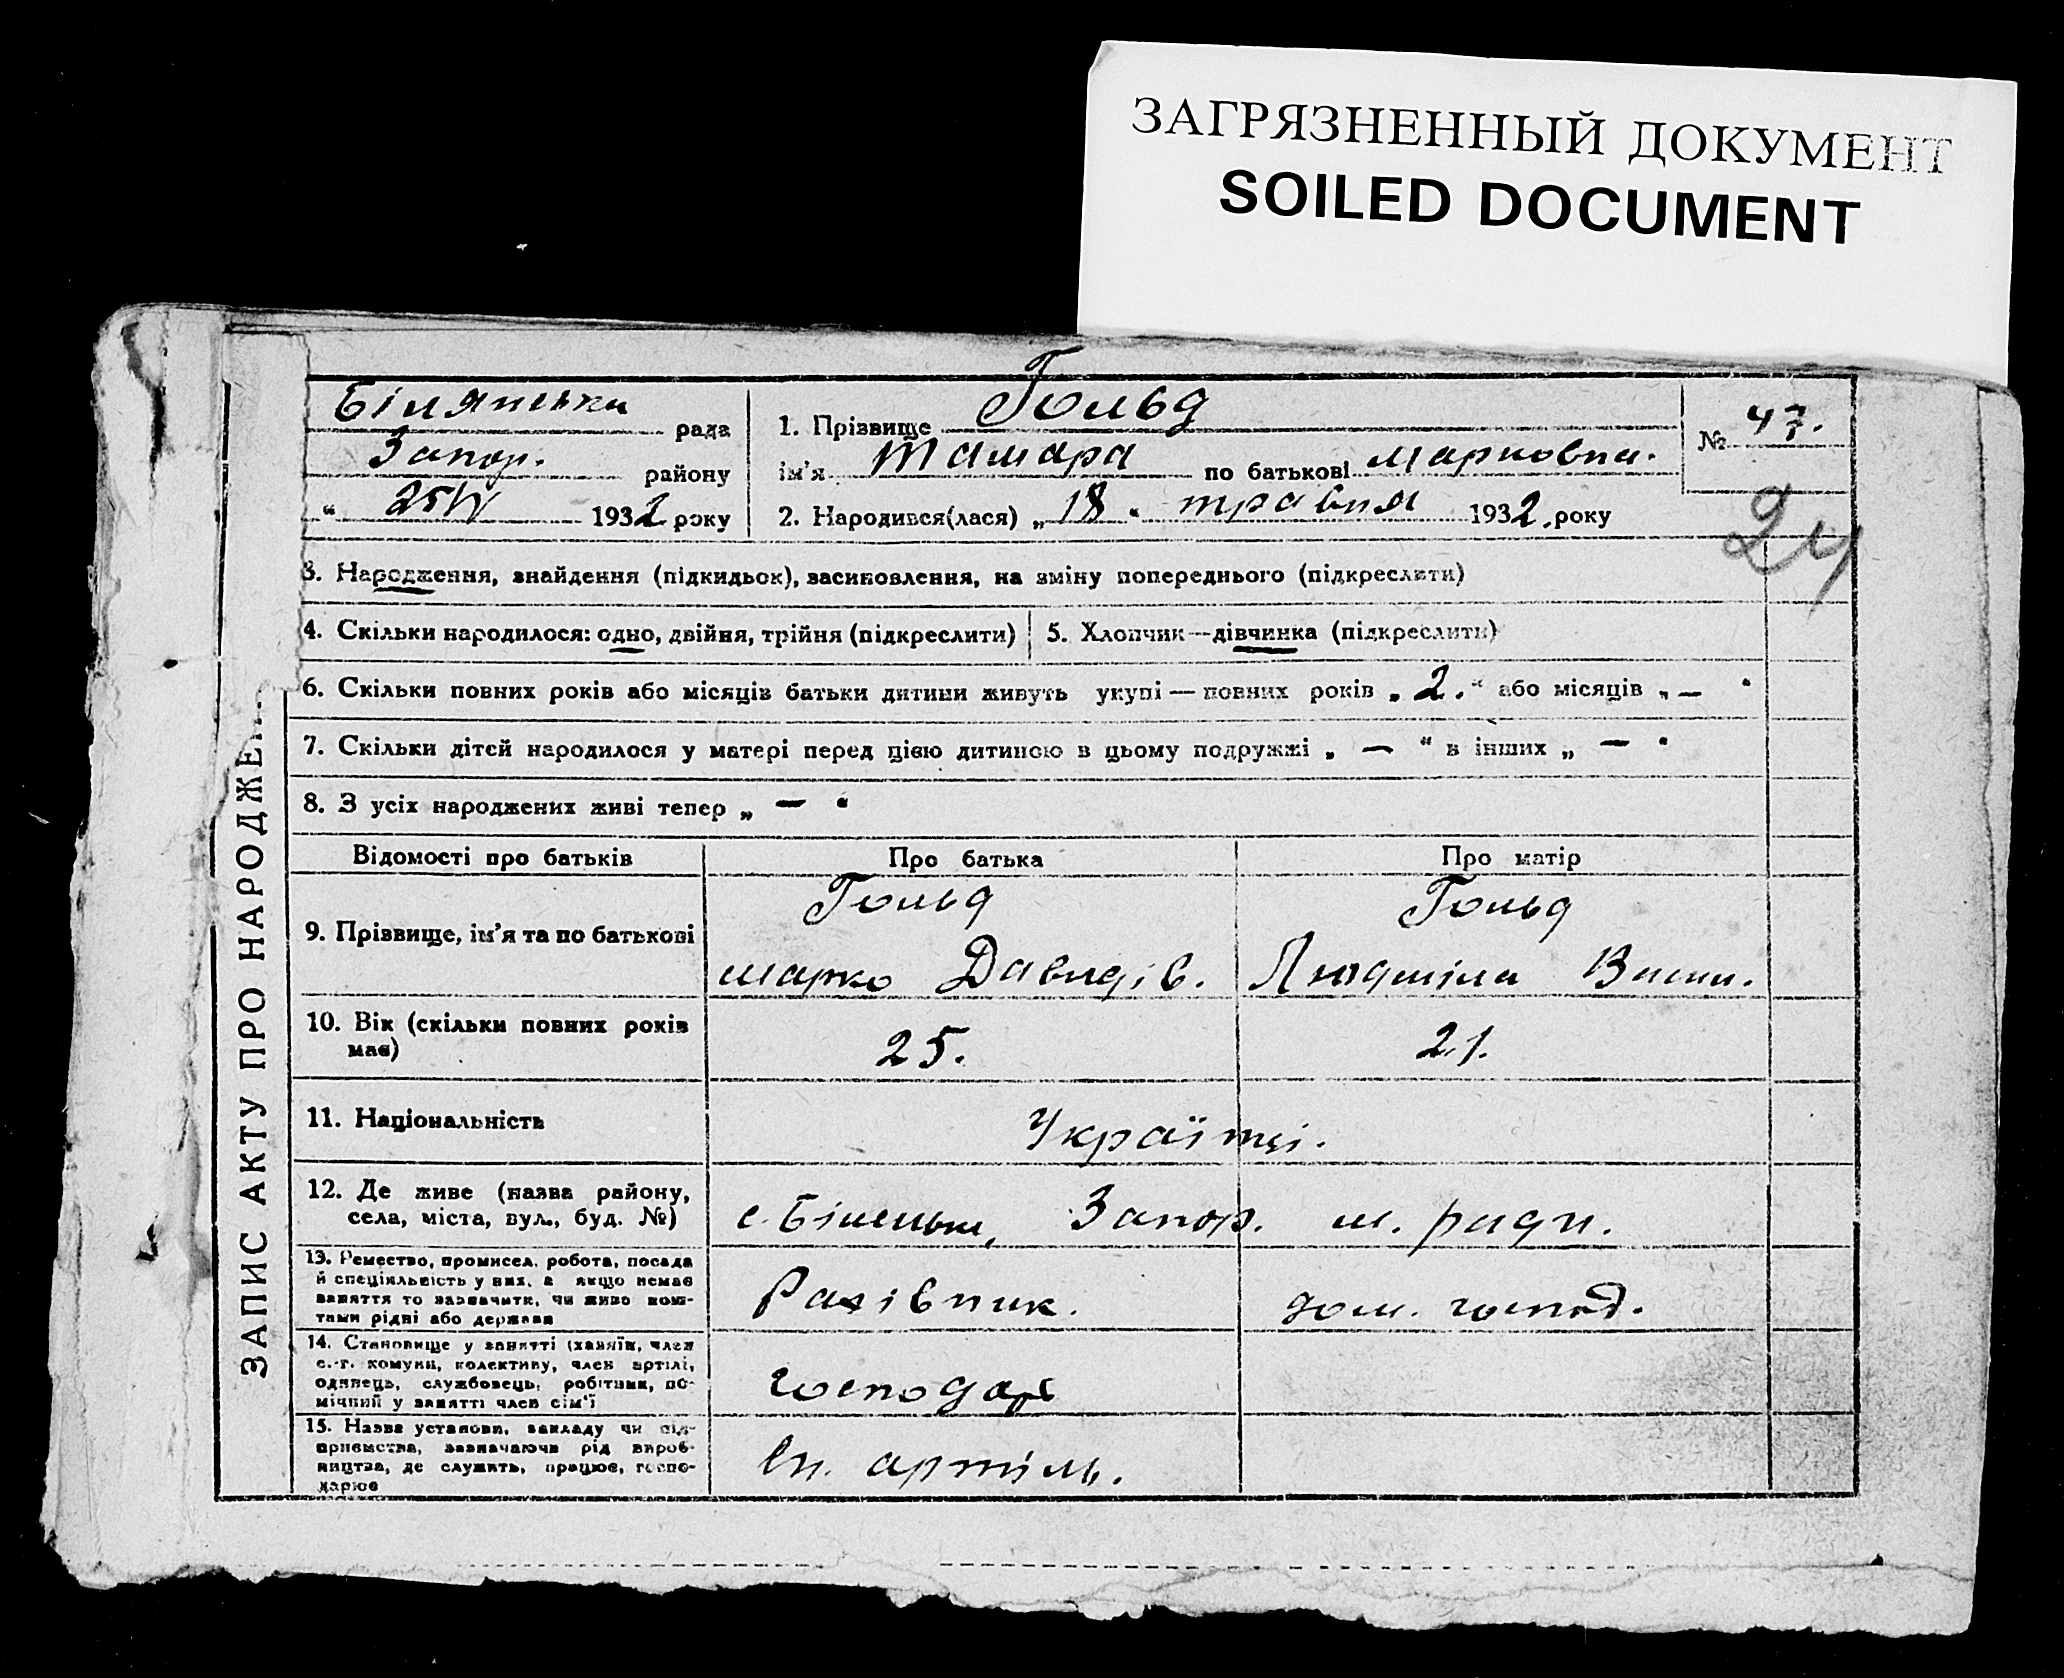 ЗАГРЯЗНЕННЫЙ ДОКУМЕНТ
SOILED DOCUMENT
ЗАПИС АКТУ ПРО НАРОДЖЕН
Білянська рада
Запор. району
" 25/V 1932 року
1. Прізвище Гольд
ім'я Тамара по батькові Марковна.
2. Народився(лася) „18" травня 1932 року
№ 47.
24
3. Народження, знайдення (підкидьок), засиновлення, на зміну попереднього (підкреслити)
4. Скільки народилося: одно, двійня, трійня (підкреслити)
5. Хлопчик—дівчинка (підкреслити)
6. Скільки повних років або місяців батьки дитини живуть укупі — повних років „2." або місяців „—"
7. Скільки дітей народилося у матері перед цією дитиною в цьому подружжі „ — " в інших „ — "
8. З усіх народжених живі тепер „ — "
Відомості про батьків Про батька Про матір
9. Прізвище, ім'я та по батькові
Гольд Гольд
Марко Давидів. Людміла Васил.
10. Вік (скільки повних років
має)
25. 21.
11. Національність
Українці.
12. Де живе (назва району,
села, міста, вул., буд. №)
Запор. м. ради.
13. Ремество, промисел, робота, посада
й спеціяльність у них, а якщо немає
заняття то зазначити, чи живе кош-
тами рідні або держави
Рахівник. дом. господ.
14. Становище у занятті (хазяїн, член
с.-г. комуни, колективу, член артілі,
одинець, службовець, робітник, по-
мічний у занятті член сім'ї
господар
15. Назва установи, закладу чи під-
приємства, зазначаючи рід вироб-
ництва, де служить, працює, госпо-
дарює
артіль.